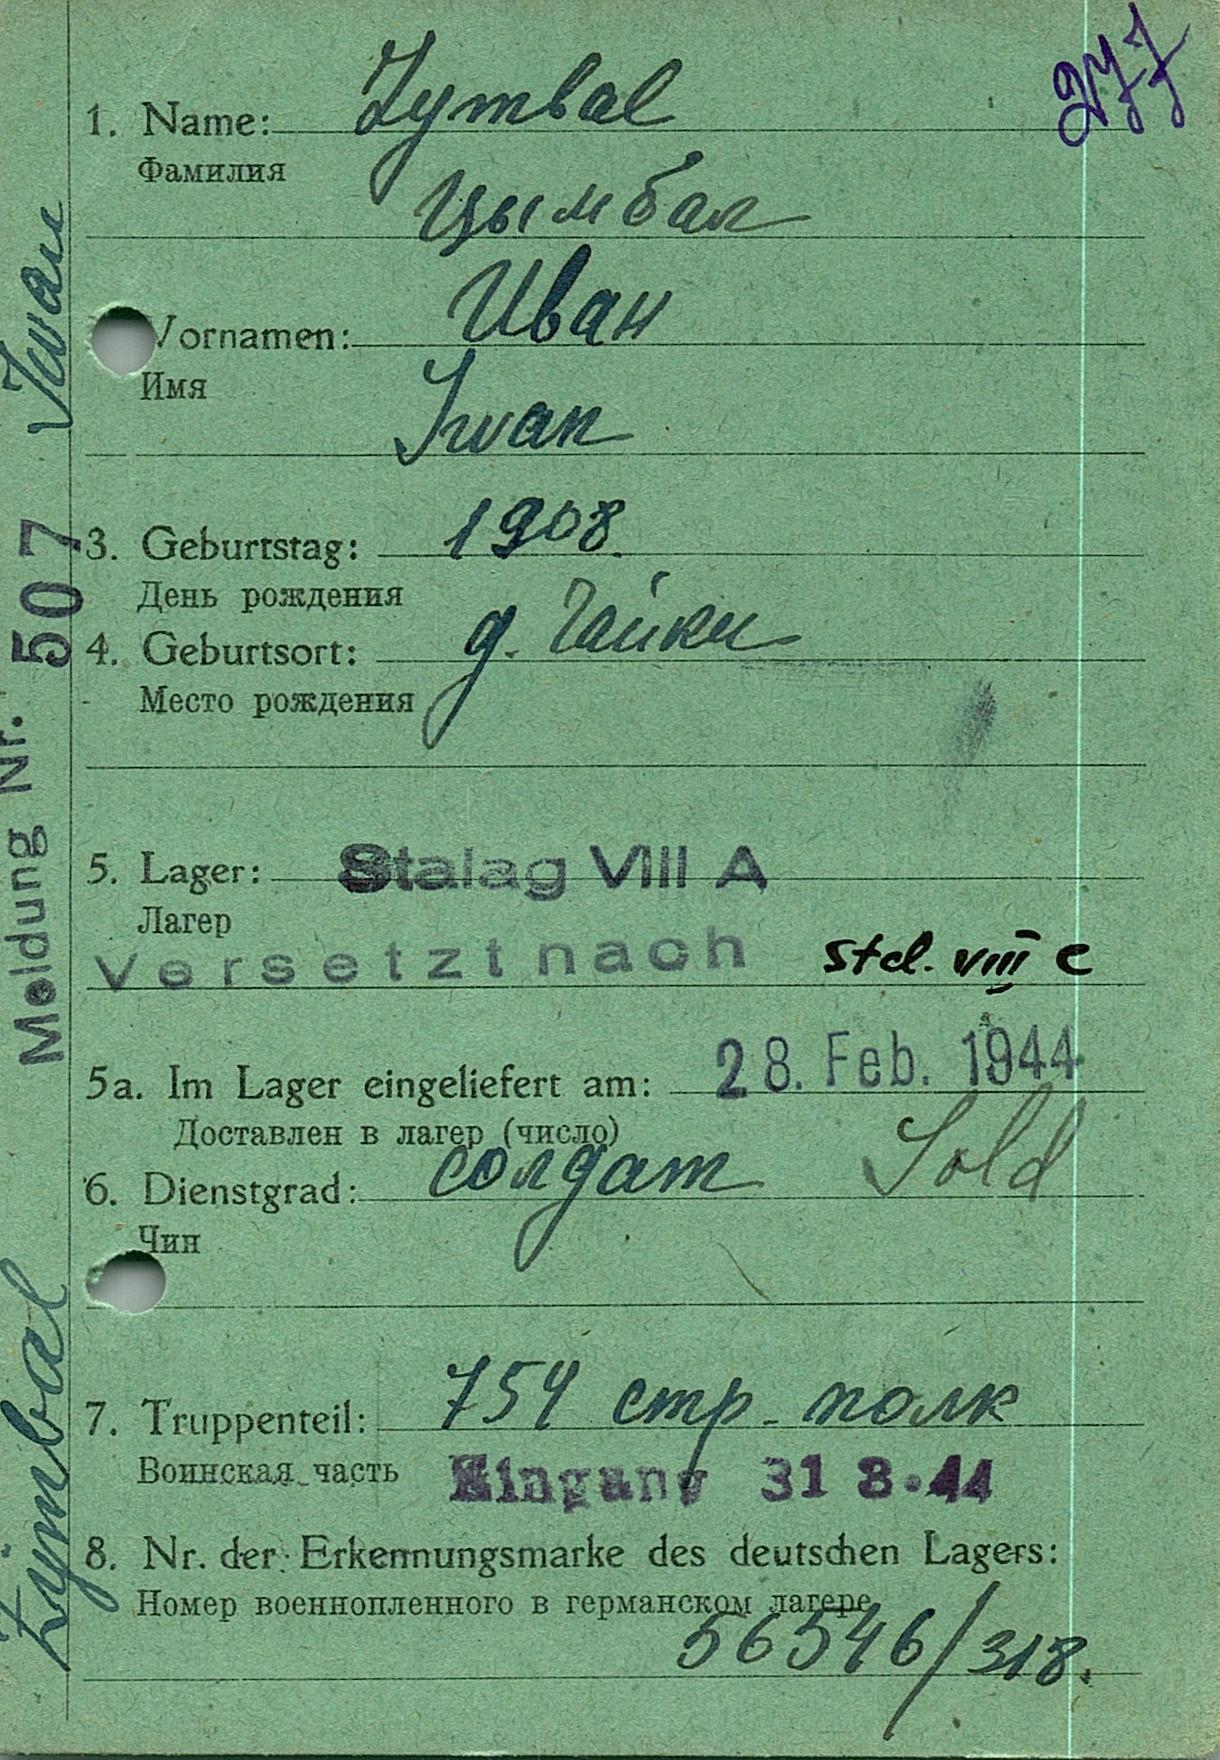 277
1. Name: Zymbal
Фамилия
Цымбал
Vornamen: Иван
Имя
Iwan
3. Geburtstag: 1908.
День рождения
4. Geburtsort: д. Гайки
Место рождения
5. Lager: Stalag VIII A
Лагер
Versetzt nach Stal. VIII C
5a. Im Lager eingeliefert am: 28. Feb. 1944
Доставлен в лагер (число)
6. Dienstgrad: солдат Sold
Чин
7. Truppenteil: 754 стр. полк
Воинская часть
Eingang 31 8.44
8. Nr. der Erkennungsmarke des deutschen Lagers:
Номер военнопленного в германском лагере
56546/318.
Zymbal Iwan
Meldung Nr. 507